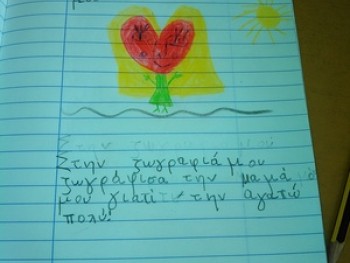 μου
Στην ζωγραφιά μου
ζωγράφισα την μαμά
μου γιατί την αγαπώ
πολύ!